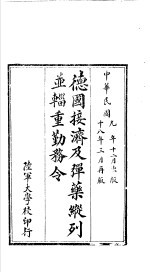 中華民國九年十二月出版
十八年三月再版
德國接濟及彈藥縱列
並輜重勤務令
陸軍大學校印行